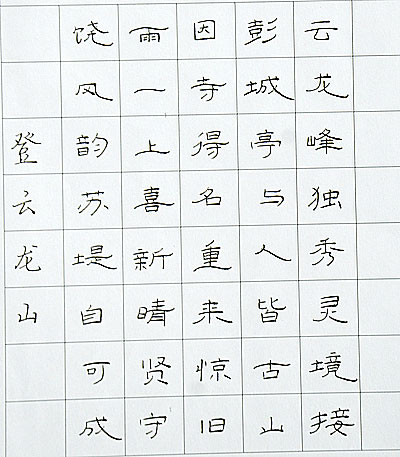 云龙峰独秀灵境接
彭城亭与人皆古山
因寺得名重来惊旧
雨一上喜新晴贤守
饶风韵苏堤自可成
登云龙山